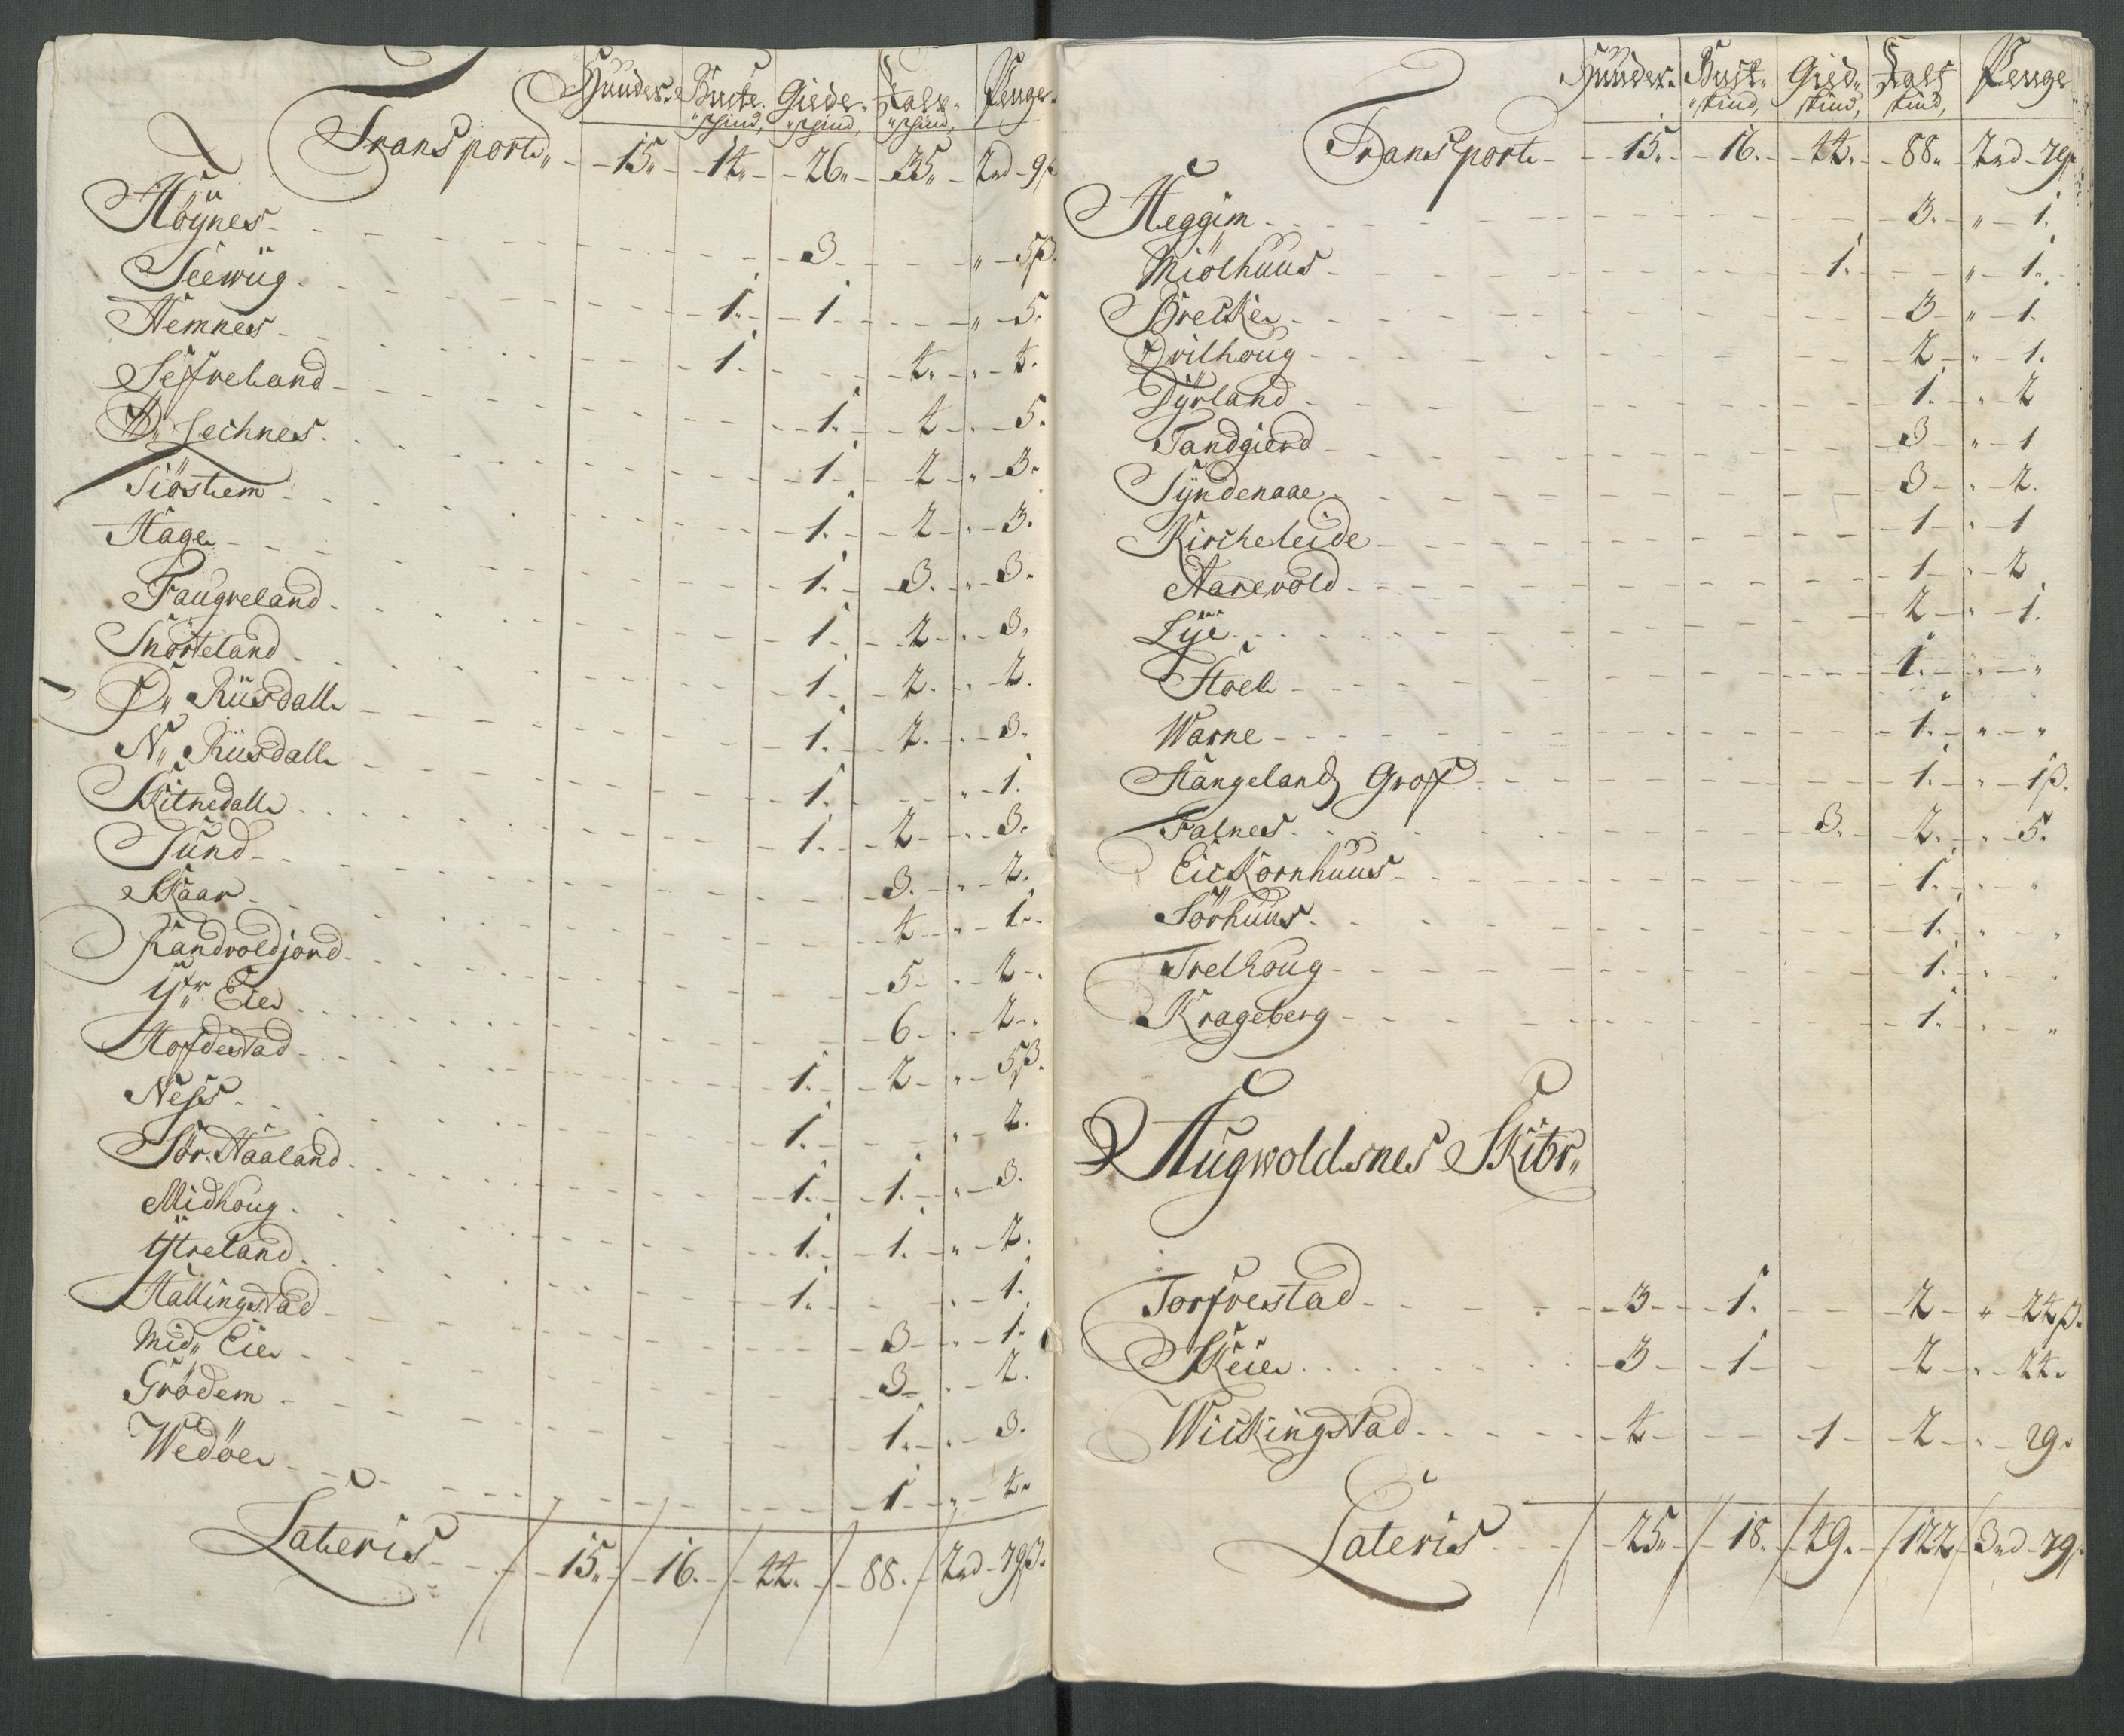 Huuder. Bucke Giede Kalf Penge
skind, skind, skind,
Transport „ 15„ 14„ 26„ 35„ 2rd 9ß
Höynes 3 „ 5ß.
Seewiig 1. 1 „ 5.
Hemnes 1. 4. „ 4.
Sefreland 1. 4 „ 5.
Lechnes 1. 2 „ 3.
Siöstem 1. 2 „ 3.
Hage 1. 3. „ 3.
Faugreland 1. 2 „ 3.
Snörteland 1. 2. „ 2.
Ø„ Riisdall 1. 2. „ 3.
N„ Riisdall 1. „ 1.
Skitnedall 1. 2 „ 3.
Sund 3. „ 2.
Skaar 4 „ 1.
Randvoldjord 5 „ 2
Yr„ Eie 6 „ 2
Hofdestad 1. 2 „ 5ß.
Ness 1. „ 2.
Sör. Haaland 1. 1. „ 3.
Midhoug 1. 1. „ 2.
Ytreland 1. „ 1.
Hallingstad 3 „ 1.
Mid„ Eie 3 „ 2.
Grödem 1. „ 3.
Wedöe 1 „ 4.
Lateris 15„ 16. 44. 88. 2rd 79ß.
Huuder. Buck„ Gied„ Kalf Penge
skind, skind, skind,
Transport 15. 16. 44. 88„ 2rd 79ß
Heggim 3. „ 1.
Miölhuus 1. „ 1.
Brecke 3 „ 1.
Qvilhoug 2 „ 1.
Dyrland 1. „ 2
Tandgierd 3 „ 1
Syndenaae 3 „ 2.
Kircheleide 1 „ 1
Aarevold 1 „ 2
Lye 2 „ 1.
Stoel 1. „ „
Warne 1. „ „
Stangeland Grof 1. „ 1ß.
Falnes 3. 2. „ 5.
Eickornhuus 1. „ „
Sörhuus 1. „ „
Trelhoug 1. „ „
Krageberg 1. „ „
Augwoldsnes Skibr„
Torfvestad 3 1. 2 „ 24ß.
Skeie 3 1 2 „ 24.
Wickingstad 4 1 2 „ 29.
Lateris 25„ 18. 49. 122 3rd 79.